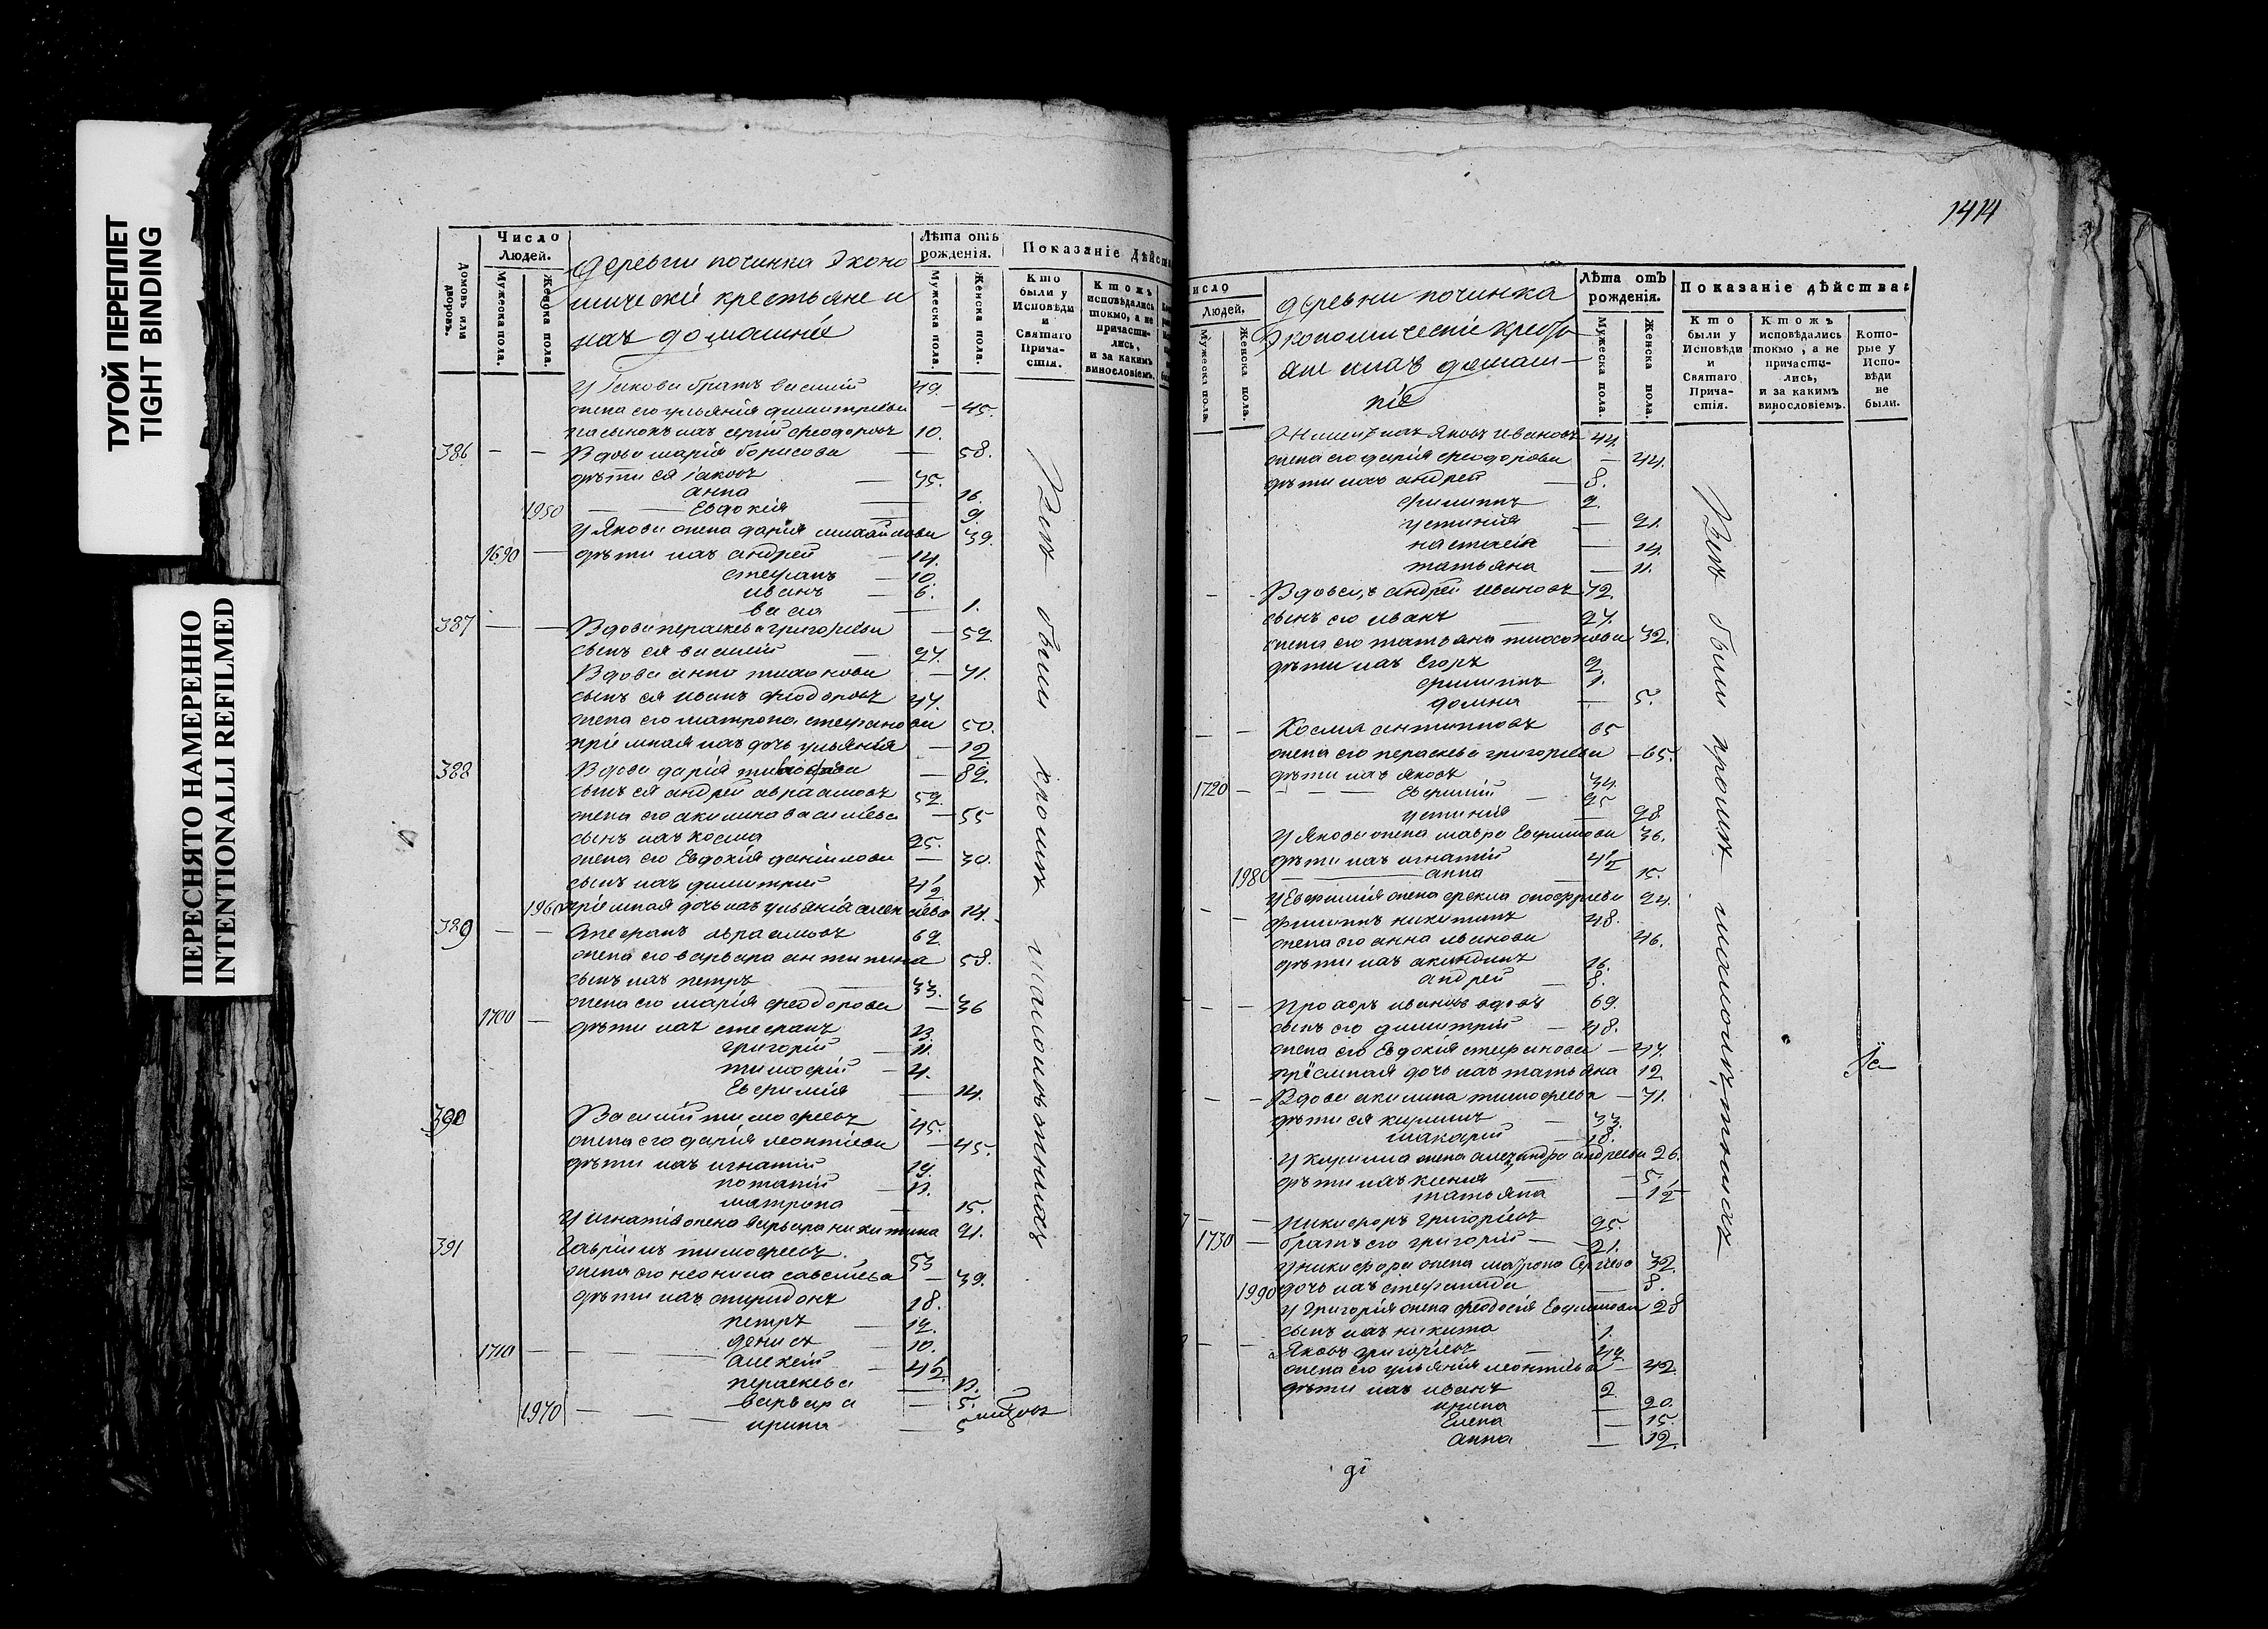 ТУГОЙ ПЕРЕПЛЕТ
TIGHT BINDING
ПЕРЕСНЯТО НАМЕРЕННО
INTENTIONALLI REFILMED
Домовъ или дворовъ.
Число Людей.
Мужеска пола.
Женска пола.
деревни починка Эконо
мическiй крестьяне и
ихъ домашнiе
Лѣта отъ рожденiя.
Мужеска пола.
Женска пола.
Показанiе Дѣйств
Кто были у Исповѣди и Святаго Прича-стiя.
Ктожъ исповѣдались токмо, а не причасти-лись, и за какимъ винословiемъ.
У Iакова братъ василiй 49.
жена его ульянiя димитрiева — 45.
пасынокъ ихъ сергiй феодоровъ 10.
386 — — Вдова марiя борисова — 58.
дѣти ея Iаковъ — 35.
анна 16.
1950 — Евдокiя — 9
у Якова жена дарiя михайлова 39.
1690 — дѣти ихъ андрей — 14.
стефанъ — 10.
иванъ — 6.
васа — 1.
387 — — Вдова параскева григорiева — 52.
сынъ ея василiй — 27.
Вдова анна тихонова — 71.
сынъ ея иванъ феодоровъ 47.
жена его матрона стефанова 50.
прiемная ихъ дочь ульянiя — 12
388 Вдова дарiя — 82.
сынъ ея андрей авраамовъ 52.
жена его акилина василiева — 55
сынъ ихъ косма 25.
жена его Евдокiя данiилова — 30.
сынъ ихъ димитрiй 4½
1960 прiемная дочь ихъ ульянiа алексiева 14.
389 — — Стефанъ авраамовъ 62
жена его варвара антипина 58.
сынъ ихъ петръ — 33.
жена его марiя феодорова — 36
1700 — дѣти ихъ стефанъ 13.
григорiй — 11.
тимофiй — 4.
Евфимiя — 14.
390 Василiй тимофеевъ 45.
жена его дарiя леонтiева — 45.
дѣти ихъ игнатiй 19.
потапiй — 13.
матрона — 15.
У игнатiя жена варвара никитина 21.
391 Гаврiилъ тимофеевъ 53
жена его неонила савелiева — 39.
дѣти ихъ спиридонъ 18.
петръ — 12.
денисъ 10.
1710 — алексiй — 4½
параскева — 13.
варвара — 5.
1970 — ирина — 5
Всѣ были кромѣ малолѣтнихъ
1414
исло Людей.
Мужеска пола.
Женска пола.
деревни починка
Экономическiе кресть
яне ихъ домаш—
нiе
Лѣта отъ рожденiя.
Мужеска пола.
Женска пола.
Показанiе дѣйства:
Кто были у Исповѣди и Святаго Прича-стiя.
Ктожъ исповѣдались токмо, а не причасти-лись, и за какимъ винословiемъ.
Кото-рые у Испо-вѣди не были.
Яковъ ивановъ 44.
жена его дарiя феодорова — 44.
дѣти ихъ андрей — 8.
филиппъ 2.
устинiя — 21.
настасiя — 14.
татьяна — 11.
— — Вдовецъ андрей ивановъ 72.
сынъ его иванъ — 27.
жена его татьяна тихонова 32.
дѣти ихъ Егоръ 2.
филиппъ 1.
домна — 5.
— — Косма антиповъ 65
жена его параскева григорiева — 65.
дѣти ихъ яковъ 34.
1720 — Евфимiй — 25
устинiя — 28
У Якова жена мавра Евфимова 36.
дѣти ихъ игнатiй 4½
1980 — анна — 15.
У Евфимiя жена фекла онофрiева 24.
— — Филиппъ никитинъ 48.
жена его анна иванова 46.
дѣти ихъ акиндинъ 16.
андрей — 8.
— — Прохоръ ивановъ вдовъ 69.
сынъ его димитрiй — 48.
жена его Евдокiя стефанова — 47.
прiемная дочь ихъ татьяна 12
— — Вдова акилина тимофеева — 71.
дѣти ея кирилъ — 33.
макарiй — 18.
У кирила жена александра андреева 26.
дѣти ихъ ксенiя — 5.
татьяна — 1½
— — Никифоръ григорiевъ 25
1730 — братъ его григорiй — 21.
У никифора жена матрона Сергiева 32
1990 дочь ихъ стефанида — 8.
У Григорiя жена феодосiя Евфимова 28
сынъ ихъ никита 1.
— — Яковъ григорiевъ — 42
жена его ульянiя леонтiева — 42
дѣти ихъ иванъ 2
ирина — 20.
Елена — 15.
анна — 12.
Всѣ были кромѣ малолѣтнихъ